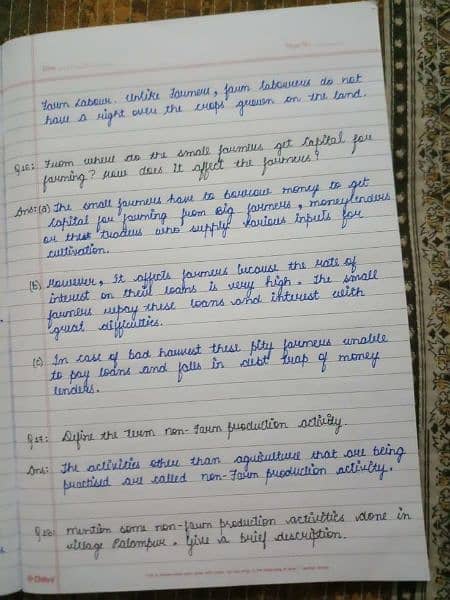 Farm Labour. Unlike Farmers, farm labourers do not
have a right over the crops grown on the land.
From where do the small farmers get capital for
farming? How does it affect the farmers?
Ans: (a) The small farmers have to borrow money to get
capital for farming from Big farmers, moneylenders
or the traders who supply various inputs for
cultivation.
(b) However, It affects farmers because the rate of
interest on their loans is very high. The small
farmers repay these loans and interest with
great difficulties.
(c) In case of bad harvest these pty farmers unable
to pay loans and falls in debt trap of money
lenders.
Q17: Define the term non-Farm production activity.
Ans: The activities other than agriculture that are being
practised are called non-Farm production activity.
Q18: Mention some non-farm production activities done in
village Palampur. Give a brief description.